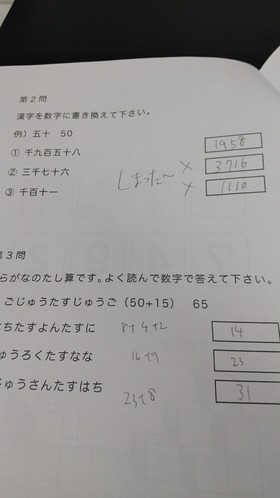 第2問
漢字を数字に書き換えて下さい。
例）五十 50
① 千九百五十八 1958
② 三千七十六 しまった〜 × 3716
③ 千百十一 × 1110
第3問
らがなのたし算です。よく読んで数字で答えて下さい。
ごじゅうたすじゅうご（50+15） 65
はちたすよんたすに 8+4+2 14
ゅうろくたすなな 16+7 23
じゅうさんたすはち 23+8 31